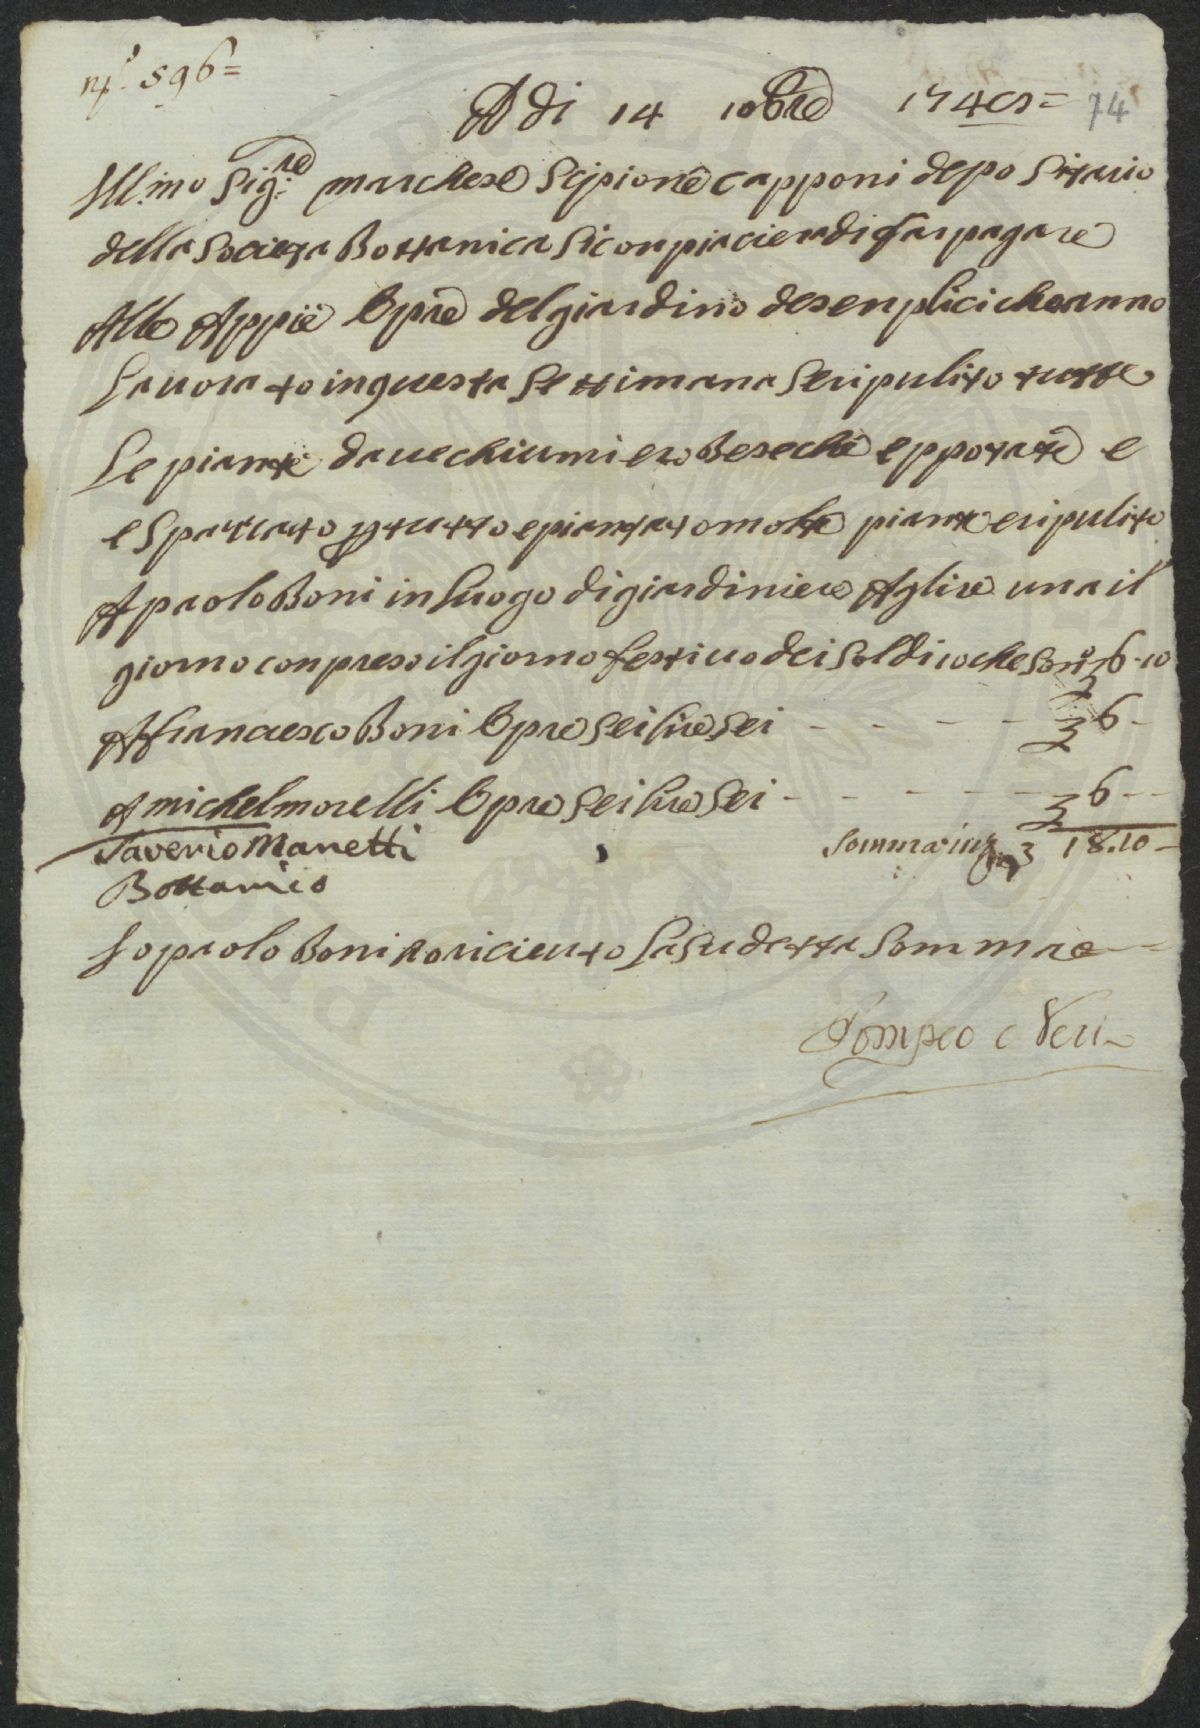 n.º 596=
A di 14 10bre 174 = 74
Ill.mo Sig.re marchese Scipione capponi depositario
della Societa Bottanica Si conpiaciera di far pagare
Alle Appiè Opre del giardino de senplici che anno
Lavorato in questa Settimana Se ripulito tutte
Le piante da vechiumi e robe seche e ppotate e
e Spaτιato per tutto e piantato molte piante e ripulito
A paolo Boni in luogo di giardiniere A lire una il
giorno conpreso il giorno festivo dei Soldi 10 che sono 6.10
A francesco Boni Opre Sei lire Sei - - - - - 6 -
A michel morelli Opre Sei lire Sei - - - - - 6 --
Saverio Manetti Somma in tutto 18.10 -
Bottanico
Io paolo Boni o riceuto La Sudetta Somma
Pompeo Neri